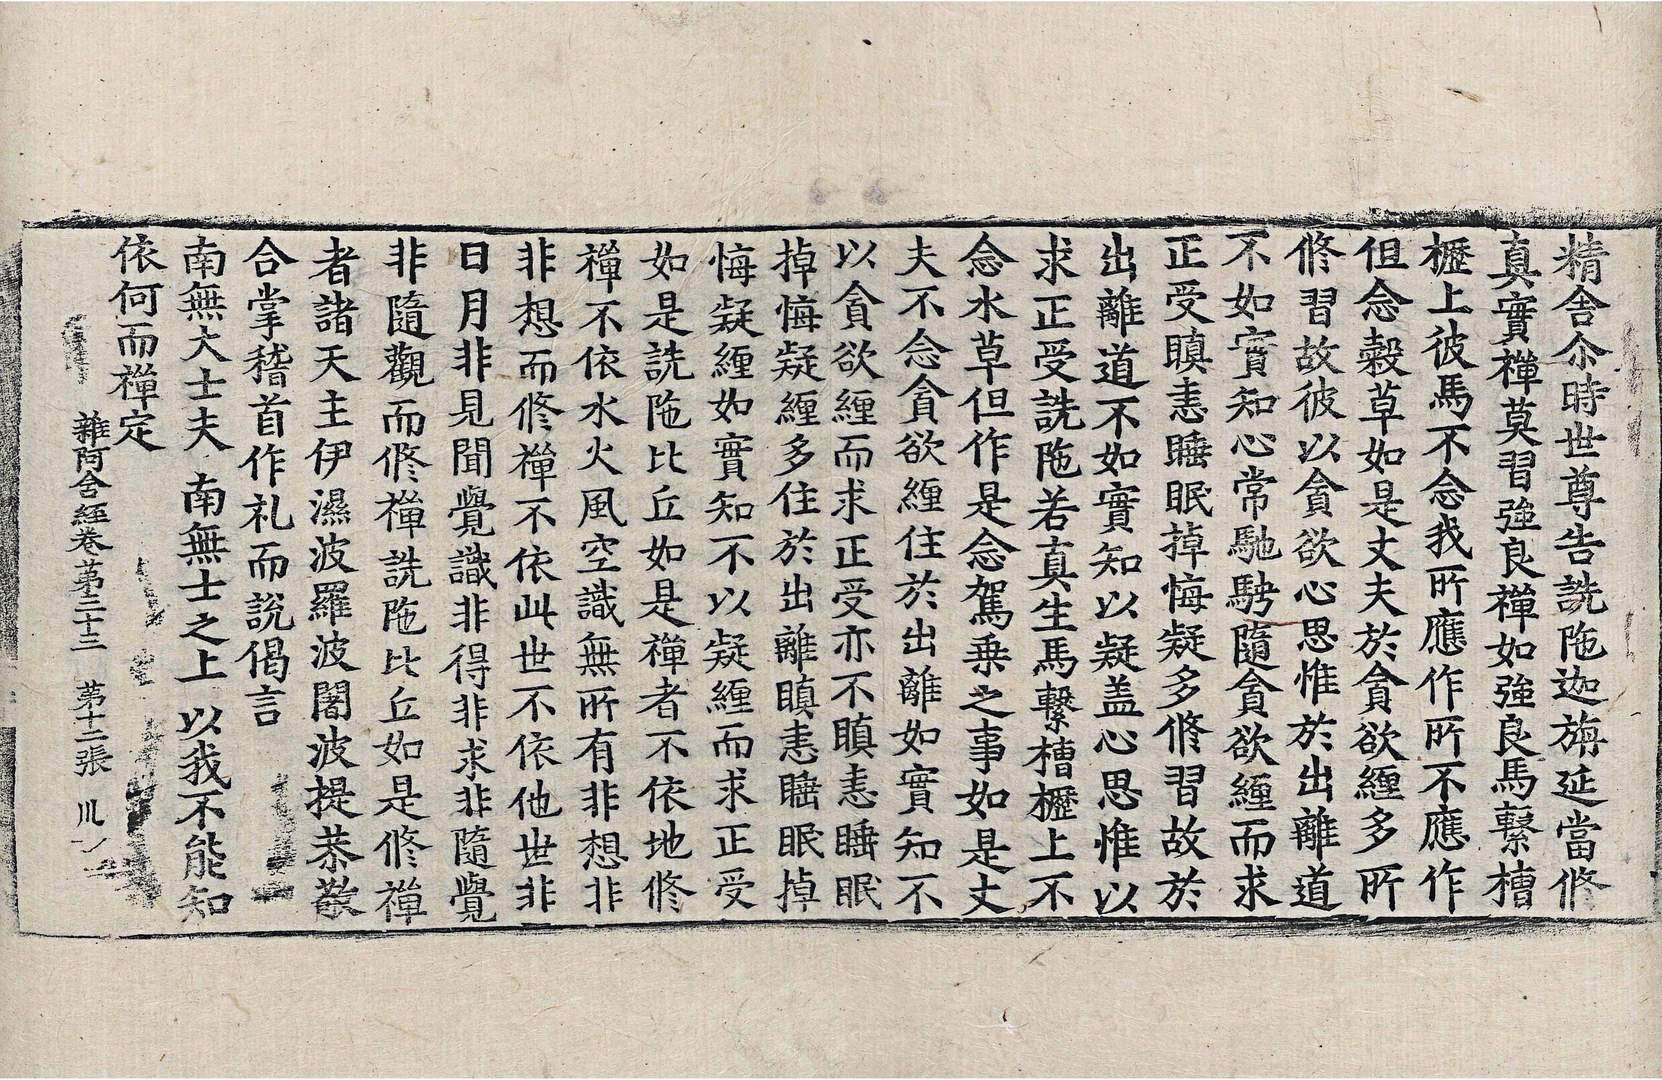 精舍尒時世尊告詵陁迦旃延當修
真實禪莫習強良禪如強良馬繫槽
櫪上彼馬不念我所應作所不應作
但念穀草如是丈夫於貪欲纏多所
修習故彼以貪欲心思惟於出離道
不如實知心常馳騁隨貪欲纏而求
正受瞋恚睡眠掉悔疑多修習故於
出離道不如實知以疑盖心思惟以
求正受詵陁若真生馬繫槽櫪上不
念水草但作是念駕乗之事如是丈
夫不念貪欲纏住於出離如實知不
以貪欲纏而求正受亦不瞋恚睡眠
掉悔疑纏多住於出離瞋恚睡眠掉
悔疑纏如實知不以疑纏而求正受
如是詵陁比丘如是禪者不依地修
禪不依水火風空識無所有非想非
非想而修禪不依此世不依他世非
日月非見聞覺識非得非求非隨覺
非隨觀而修禪詵陁比丘如是修禪
者諸天主伊濕波羅波闍波提恭敬
合掌稽首作礼而說偈言
南無大士夫 南無士之上 以我不能知
依何而禪定
雜阿含經卷苐三十三 苐十二張 川